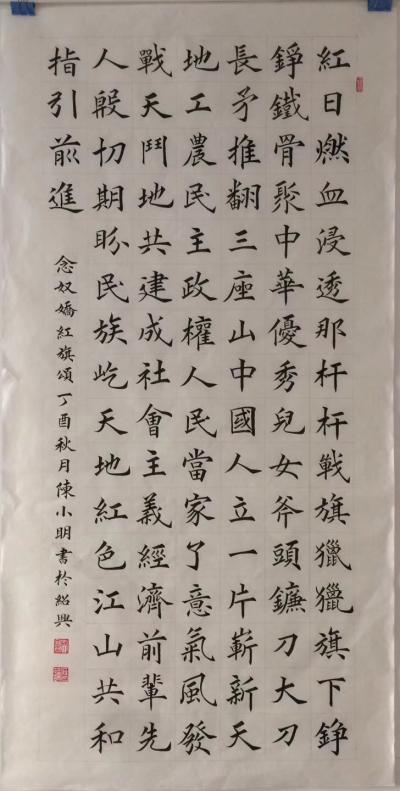 紅日燃血浸透那杆杆戰旗獵獵旗下錚
錚鐵骨聚中華優秀兒女斧頭鐮刀大刀
長矛推翻三座山中國人立一片嶄新天
地工農民主政權人民當家了意氣風發
戰天鬥地共建成社會主義經濟前輩先
人殷切期盼民族屹天地紅色江山共和
指引前進
念奴嬌紅旗頌丁酉秋月陳小明書於紹興